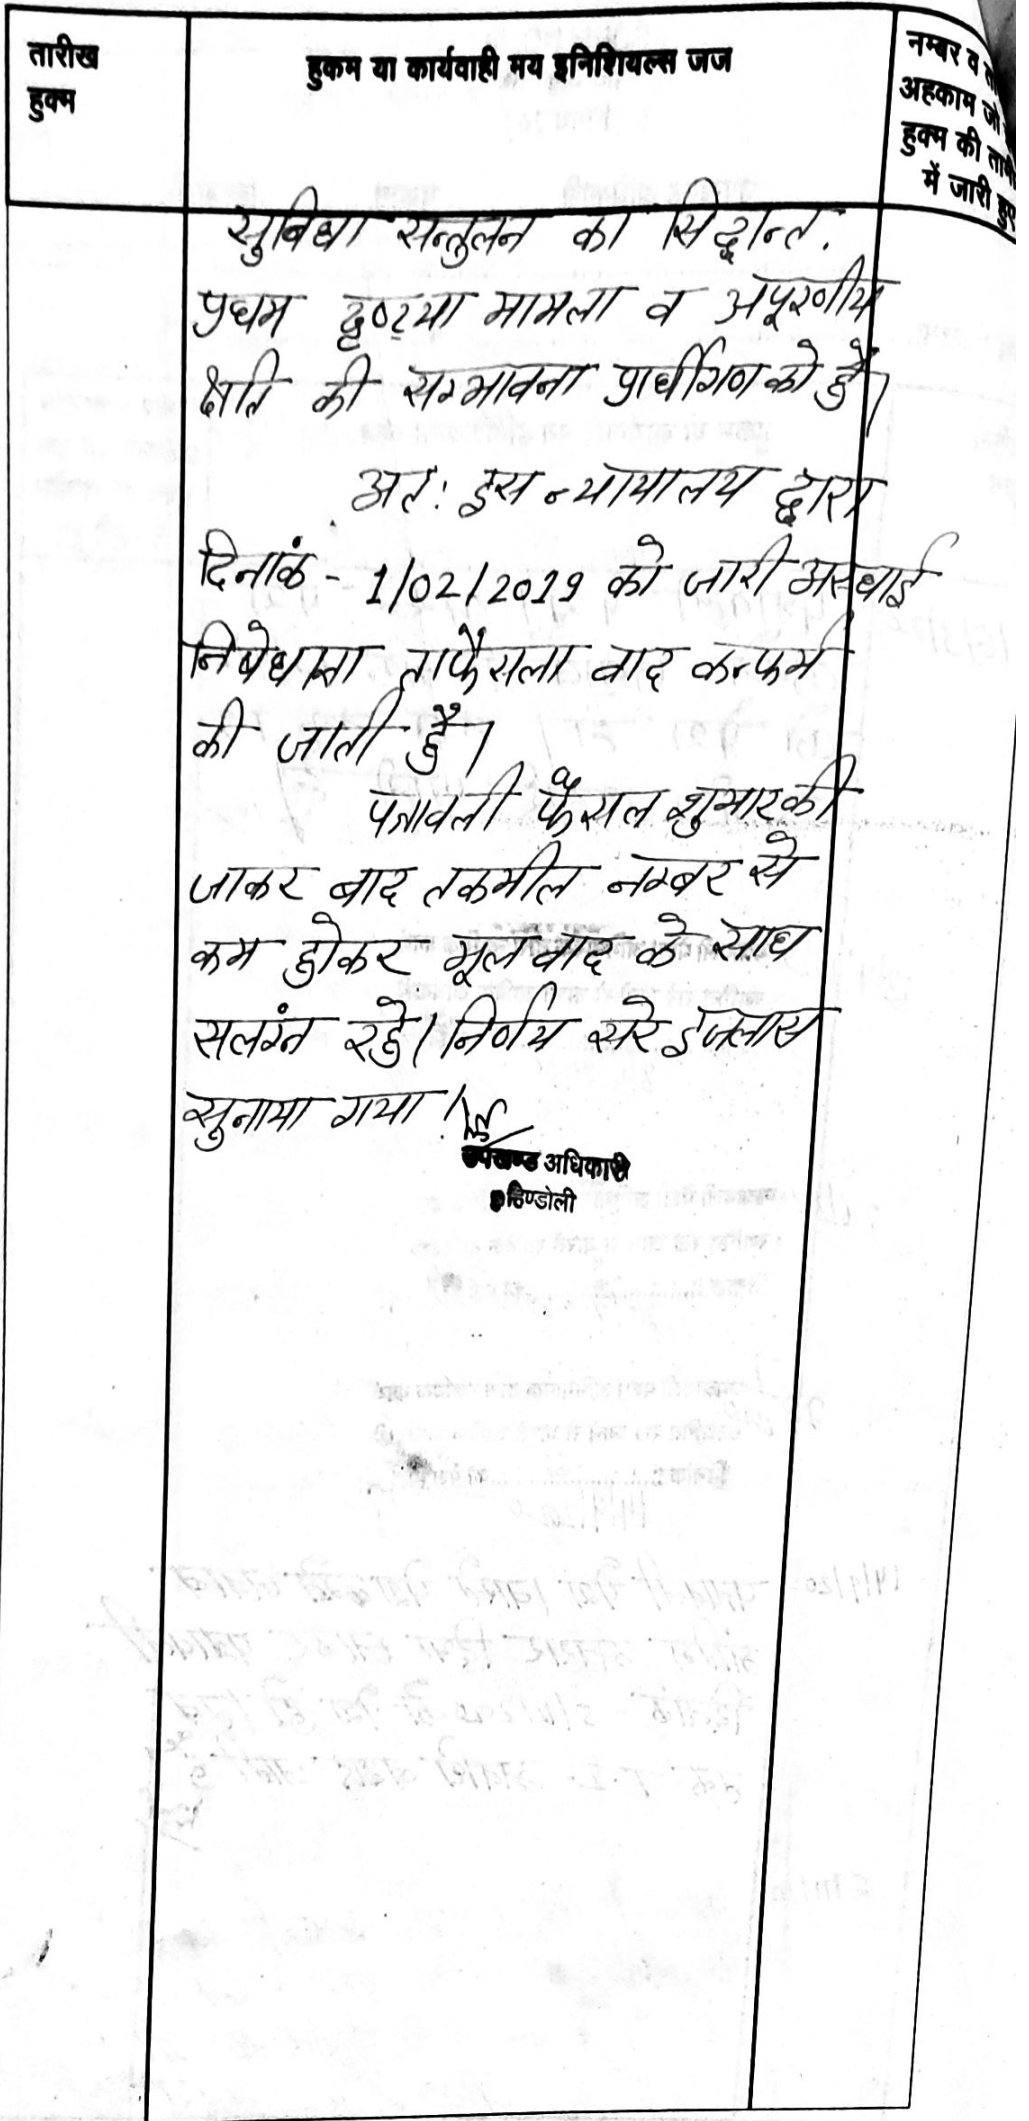 तारीख
हुक्म
हुकम या कार्यवाही मय इनिशियल्स जज
नम्बर व
अहकाम जो
हुक्म की
में जारी हुए
सुविधा सन्तुलन का सिद्धान्त.
प्रथम दृष्टया मामला व अपूरणीय
क्षति की सम्भावना प्रार्थीगण को है।
अतः इस न्यायालय द्वारा
दिनांक - 1/02/2019 को जारी अस्थाई
निषेधाज्ञा ताफैसला वाद कन्फर्म
की जाती है।
पत्रावली फैसल शुमार की
जाकर बाद तकमील नम्बर से
कम होकर मूल वाद के साथ
सलंग्न रहे। निर्णय सरे इजलास
सुनाया गया।
उपखण्ड अधिकारी
हिण्डोली